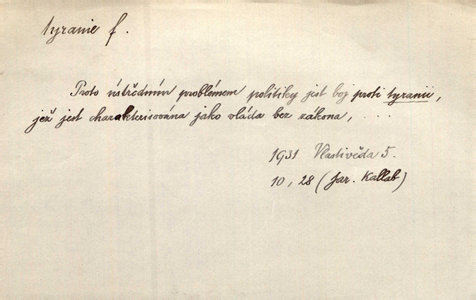 tyranie f.
Proto ústředním problémem politiky jest boj proti tyranii,
jež jest charakterisována jako vláda bez zákona, . . . .
1931 Vlastivěda 5.
10, 28 (Jar. Kallab)